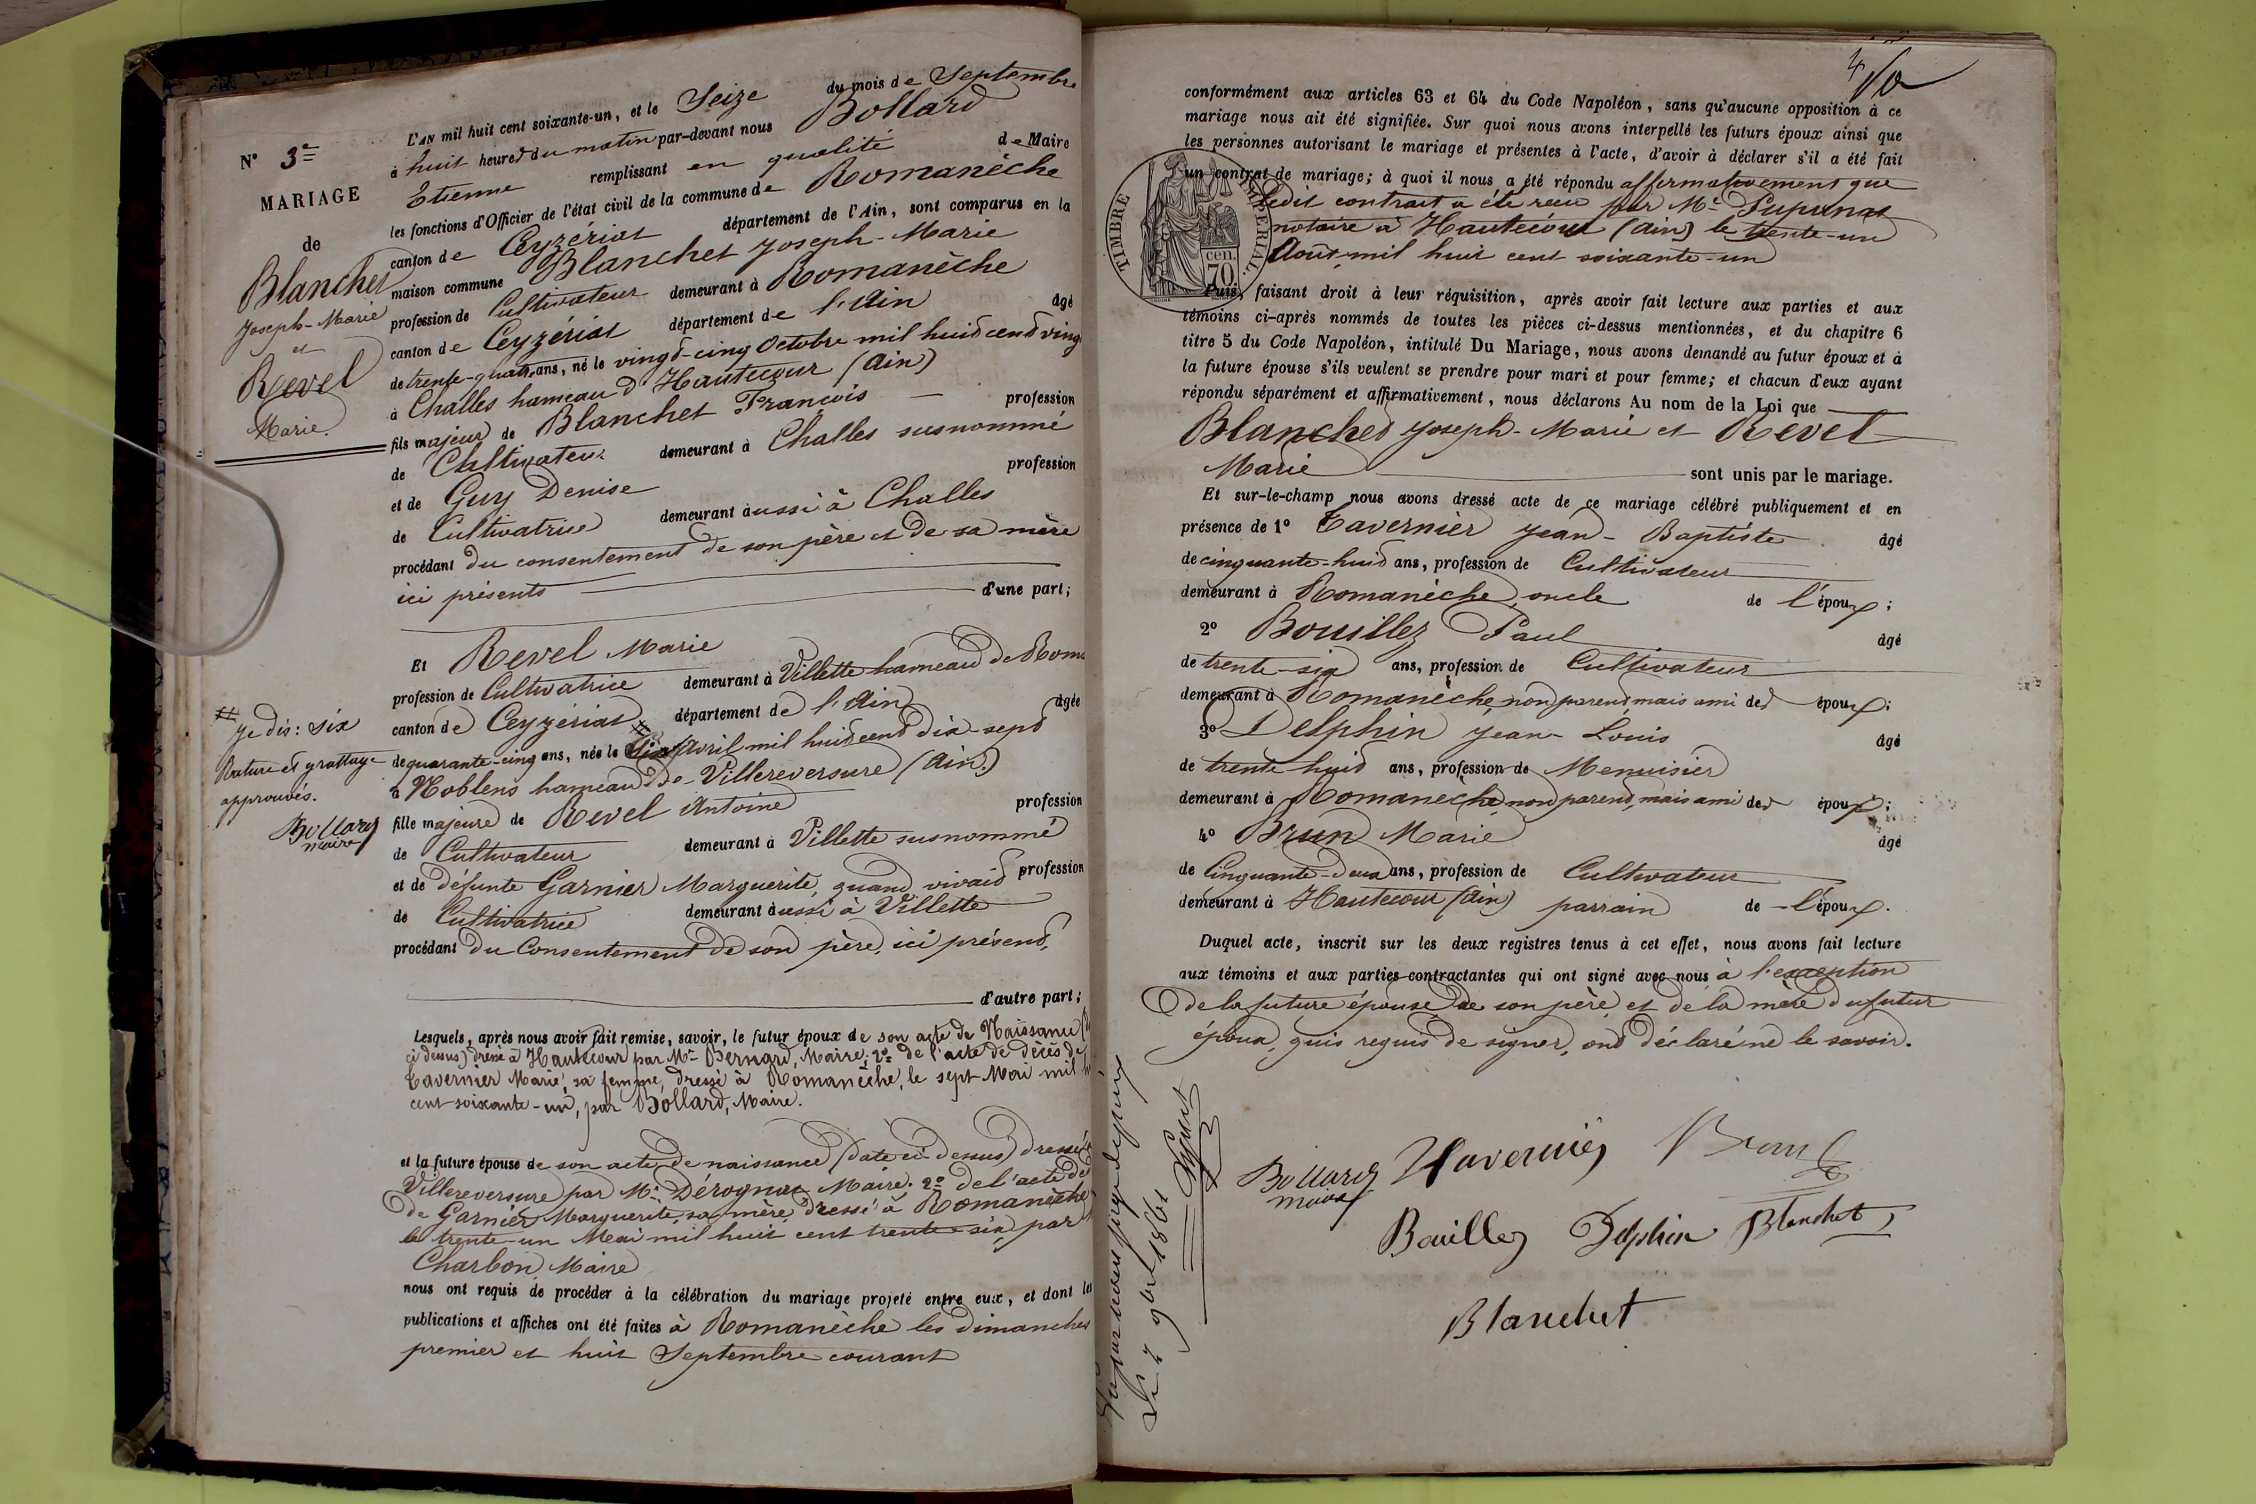 N° 3e
MARIAGE
de
Blanchet
Joseph-Marie
et
Revel
Marie.
L'AN mil huit cent soixante-un, et le Seize du mois de Septembre
à huit heures du matin par-devant nous Bollard
Etienne remplissant en qualité de Maire
les fonctions d'Officier de l'état civil de la commune de Romanèche
canton de Ceyzériat département de l'Ain, sont comparus en la
maison commune Blanchet Joseph-Marie
profession de Cultivateur demeurant à Romanèche
canton de Ceyzériat département de l'Ain âgé
de trente-quatre ans, né le vingt-cinq Octobre mil huit cent vingt
à Challes hameau d'Hautecour (Ain)
fils majeur de Blanchet François profession
de Cultivateur demeurant à Challes susnommé
et de Guy Denise profession
de Cultivatrice demeurant aussi à Challes
procédant du consentement de son père et de sa mère
ici présents d'une part;
Et Revel Marie
profession de Cultivatrice demeurant à Villette hameau de Roma
canton de Ceyzériat département de l'Ain âgée
de quarante-cinq ans, née le Six Avril mil huit cent dix-sept
à Noblens hameau de Villereversure (Ain)
fille majeure de Revel Antoine profession
de Cultivateur demeurant à Villette susnommé
et de défunte Garnier Marguerite, quand vivait profession
de Cultivatrice demeurant aussi à Villette
procédant du Consentement de son père, ici présent,
d'autre part;
Je dis: six
Rature et grattage
approuvés.
Bollard
maire
Lesquels, après nous avoir fait remise, savoir, le futur époux de son acte de Naissance
ci dessus) dressé à Hautecour par Mr Bernard, Maire; 2° de l'acte de décès de
Tavernier Marie, sa femme, dressé à Romanèche, le sept Mai mil
cent soixante-un, par Bollard, Maire.
et la future épouse de son acte de naissance (date ci-dessus) dressé
Villereversure par Mr Dérognat Maire. 2° de l'acte de
de Garnier Marguerite, sa mère, dressé à Romanèche
le trente-un Mai mil huit cent trente-six, par
Charbon, Maire
nous ont requis de procéder à la célébration du mariage projeté entre eux, et dont les
publications et affiches ont été faites à Romanèche les dimanches
premier et huit Septembre courant
4
conformément aux articles 63 et 64 du Code Napoléon, sans qu'aucune opposition à ce
mariage nous ait été signifiée. Sur quoi nous avons interpellé les futurs époux ainsi que
les personnes autorisant le mariage et présentes à l'acte, d'avoir à déclarer s'il a été fait
un contrat de mariage; à quoi il nous a été répondu affirmativement que
ledit contrat a été reçu par Me
notaire à Hautecour (Ain) le trente-un
Août mil huit cent soixante-un
TIMBRE IMPÉRIAL.
70 cen.
Puis, faisant droit à leur réquisition, après avoir fait lecture aux parties et aux
témoins ci-après nommés de toutes les pièces ci-dessus mentionnées, et du chapitre 6
titre 5 du Code Napoléon, intitulé Du Mariage, nous avons demandé au futur époux et à
la future épouse s'ils veulent se prendre pour mari et pour femme; et chacun d'eux ayant
répondu séparément et affirmativement, nous déclarons Au nom de la Loi que
Blanchet Joseph-Marie et Revel
Marie sont unis par le mariage.
Et sur-le-champ nous avons dressé acte de ce mariage célébré publiquement et en
présence de 1° Tavernier Jean-Baptiste âgé
de cinquante-huit ans, profession de Cultivateur
demeurant à Romanèche, oncle de l'époux;
2° Bouillez Paul âgé
de trente-six ans, profession de Cultivateur
demeurant à Romanèche, non parent mais ami des époux;
3° Delphin Jean-Louis âgé
de trente huit ans, profession de Menuisier
demeurant à Romanèche non parent, mais ami des époux;
4° Brun Marie âgé
de Cinquante-deux ans, profession de Cultivateur
demeurant à Hautecour (Ain) parrain de l'époux.
Duquel acte, inscrit sur les deux registres tenus à cet effet, nous avons fait lecture
aux témoins et aux parties contractantes qui ont signé avec nous à l'exception
de la future épouse, de son père, et de la mère du futur
époux, quis requis de signer, ont déclaré ne le savoir.
Bollard
maire
Tavernier
Brun
Bouillez
Delphin
Blanchet
Blanchet